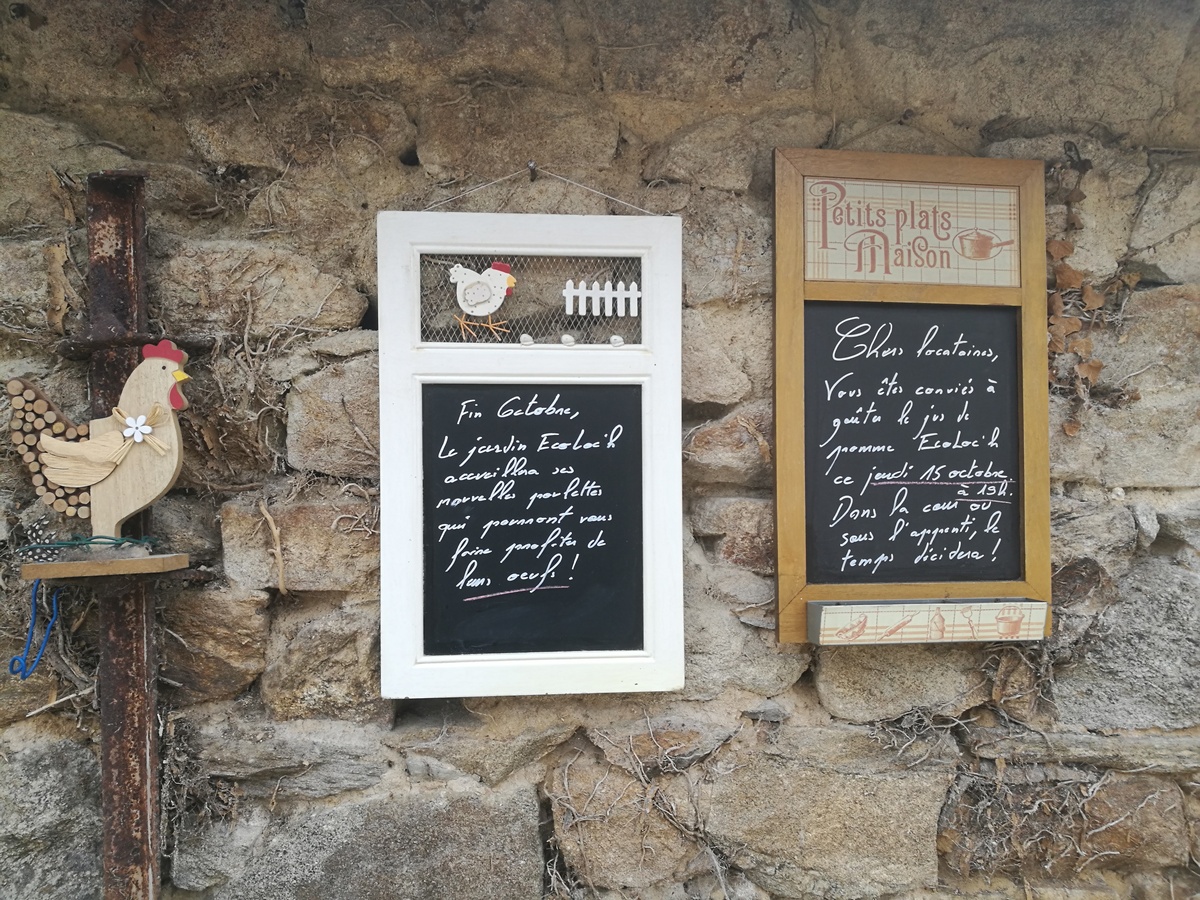 Fin Octobre,
Le jardin EcoLoc'h
accueillera ses
nouvelles poulettes
qui pourront vous
faire profiter de
leurs oeufs !
Petits plats
Maison
Chers locataires,
Vous êtes conviés à
goûter le jus de
pomme EcoLoc'h
ce jeudi 15 octobre
à 19h.
Dans la cour ou
sous l'appenti, le
temps décidera !